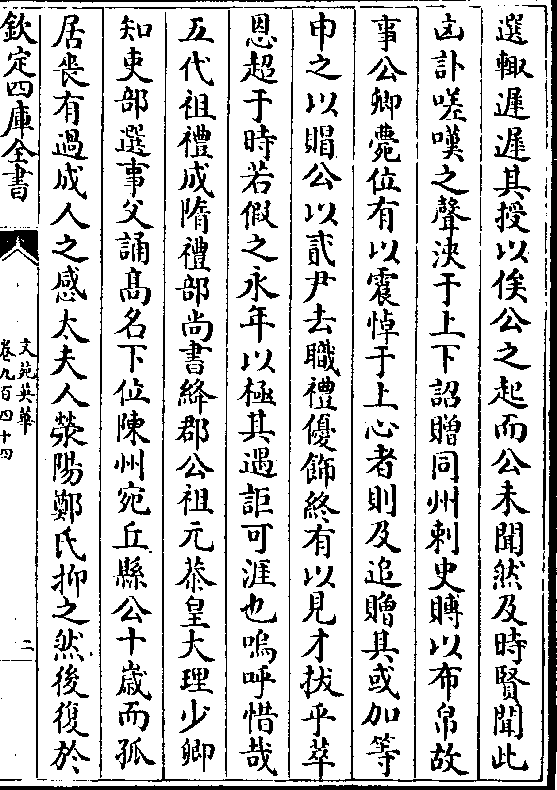 選輙遲遲其授以俟公之起而公未聞然及時賢聞此
凶訃嗟嘆之聲浹于上下詔贈同州刺史賻以布帛故
事公卿薨位有以震悼于上心者則及追贈其或加等
申之以賵公以貳尹去職禮優飾終有以見才拔乎萃
恩超于時若假之永年以極其遇詎可涯也嗚呼惜哉
五代祖禮成隋禮部尚書絳郡公祖元恭皇大理少卿
知吏部選事父誦髙名下位陳州宛丘縣公十嵗而孤
居喪有過成人之感太夫人滎陽鄭氏抑之然後復於
欽定四庫全書
文苑英華
卷九百四十四
二